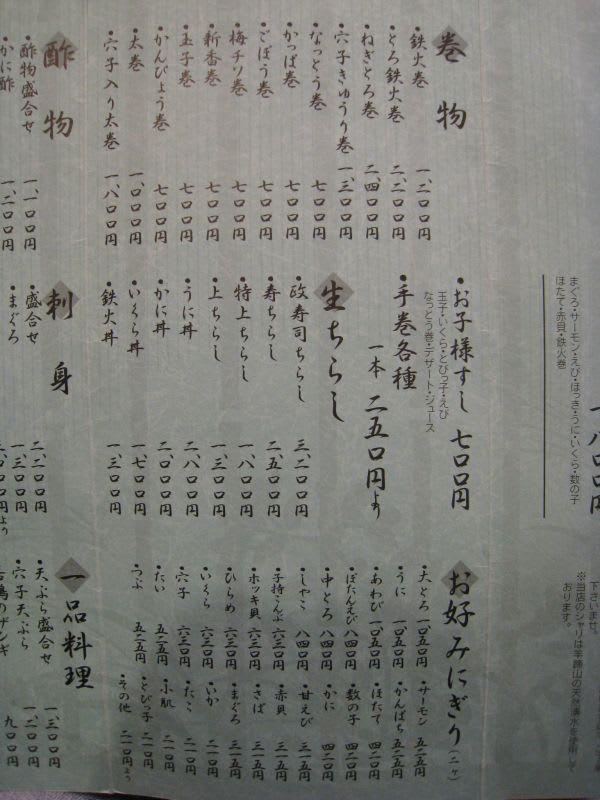 一、八〇〇円
まぐろ・サーモン・えび・ほっき・うに・いくら・数の子
ほたて・赤貝・鉄火巻
下さいませ。
※当店のシャリは羊蹄山の天然湧水を使用して
おります。
巻物
・鉄火巻 一、二〇〇円
・とろ鉄火巻 二、二〇〇円
・ねぎとろ巻 二、四〇〇円
・穴子きゅうり巻 一、三〇〇円
・なっとう巻 七〇〇円
・かっぱ巻 七〇〇円
・ごぼう巻 七〇〇円
・梅チソ巻 七〇〇円
・新香巻 七〇〇円
・玉子巻 七〇〇円
・かんぴょう巻 七〇〇円
・太巻 一、〇〇〇円
・穴子入り太巻 一、八〇〇円
酢物
・酢物盛合せ 一、一〇〇円
・かに酢
・お子様すし 七〇〇円
玉子・いくら・とびっ子・えび
なっとう巻・デザート・ジュース
・手巻各種
一本 二五〇円より
生ちらし
・政寿司ちらし 三、二〇〇円
・寿ちらし 二、五〇〇円
・特上ちらし 一、八〇〇円
・上ちらし 一、三〇〇円
・うに丼 二、八〇〇円
・かに丼 二、〇〇〇円
・いくら丼 一、七〇〇円
・鉄火丼 一、三〇〇円
刺身
・盛合せ 二、二〇〇円
・まぐろ 一、三〇〇円
お好みにぎり(二ヶ)
・大とろ 一〇五〇円
・うに 一〇五〇円
・あわび 一〇五〇円
・ぼたんえび 八四〇円
・中とろ 八四〇円
・しゃこ 八四〇円
・子持こんぶ 六三〇円
・ホッキ貝 六三〇円
・ひらめ 六三〇円
・いくら 六三〇円
・穴子 六三〇円
・たい 五二五円
・つぶ 五二五円
・サーモン 五二五円
・かんぱち 五二五円
・ほたて 四二〇円
・数の子 四二〇円
・かに 四二〇円
・甘えび 三一五円
・赤貝 三一五円
・さば 三一五円
・まぐろ 三一五円
・いか 二一〇円
・たこ 二一〇円
・小肌 二一〇円
・とびっ子 二一〇円
・その他 二一〇円より
一品料理
・天ぷら盛合せ 一、三〇〇円
・穴子天ぷら 一、二〇〇円
・若鶏のザンギ 九〇〇円